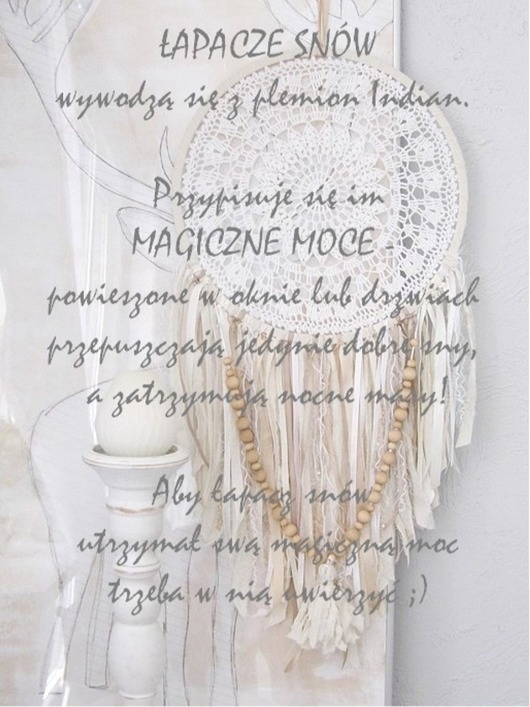 ŁAPACZE SNÓW
wywodzą się z plemion Indian.
Przypisuje się im
MAGICZNE MOCE -
powieszone w oknie lub drzwiach
przepuszczają jedynie dobre sny,
a zatrzymują nocne mary!
Aby łapacz snów
utrzymał swą magiczną moc
trzeba w nią uwierzyć ;)